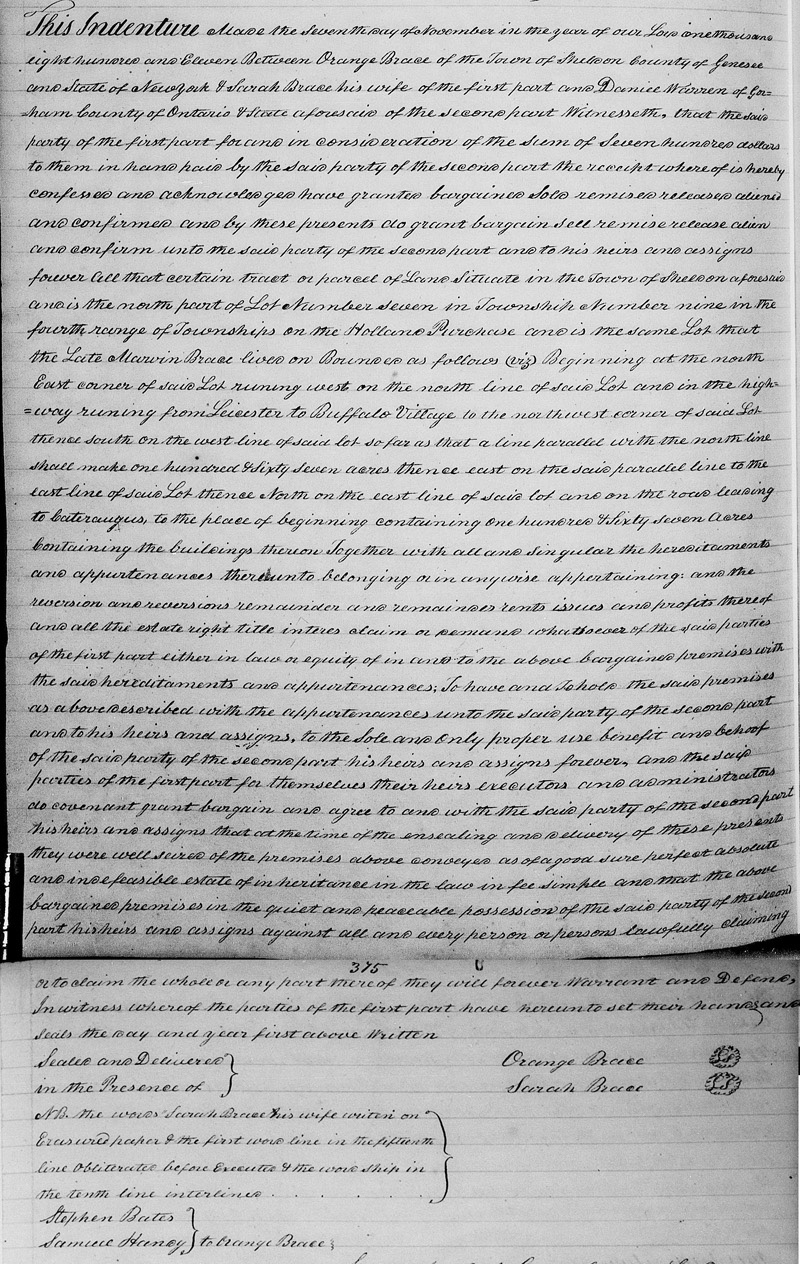 This Indenture Made the Seventh day of November in the year of our Lord one thousand
eight hundred and Eleven Between Orange Brace of the Town of Sheldon County of Genesee
and State of New York & Sarah Brace his wife of the first part and Daniel Warren of Gor=
=ham County of Ontario & State aforesaid of the second part Witnesseth, that the said
party of the first part for and in consideration of the sum of Seven hundred dollars
to them in hand paid by the said party of the second part the receipt whereof is hereby
confessed and acknowledged have granted bargained Sold remised released aliened
and confirmed and by these presents do grant bargain sell remise release alien
and confirm unto the said party of the second part and to his heirs and assigns
forever all that certain tract or parcel of Land Situate in the Town of Sheldon aforesaid
and is the north part of Lot Number seven in Township Number nine in the
fourth range of Townships on the Holland Purchase and is the same Lot that
the Late Marvin Brace lived on Bounded as follows (viz) Beginning at the north
East corner of said Lot runing west on the north line of said Lot and in the high=
=way runing from Leicester to Buffalo Village to the northwest corner of said Lot
thence south on the west line of said lot so far as that a line parallel with the north line
shall make one hundred & Sixty Seven acres thence east on the said parallel line to the
east line of said Lot thence North on the east line of said lot and on the road leading
to Cateraugus, to the place of beginning containing one hundred & Sixty seven Acres
Containing the buildings thereon Together with all and singular the hereditaments
and appurtenances thereunto belonging or in anywise appertaining: and the
reversion and reversions remainder and remainders rents issues and profits thereof
and all the estate right title interes claim or demand whatsoever of the said parties
of the first part either in law or equity of in and to the above bargained premises with
the said hereditaments and appurtenances; To have and To hold the said premises
as above described with the appurtenances unto the said party of the second part
and to his heirs and assigns, to the Sole and Only proper use benefit and behoof
of the said party of the second part his heirs and assigns forever, and the said
parties of the first part for themselves their heirs executors and administrators
do covenant grant bargain and agree to and with the said party of the second part
his heirs and assigns that at the time of the ensealing and delivery of these presents
they were well seized of the premises above conveyed as of a good sure perfect absolute
and indefeasible estate of inheritance in the law in fee simple and that the above
bargained premises in the quiet and peaceable possession of the said party of the second
part his heirs and assigns against all and every person or persons lawfully claiming
375
or to claim the whole or any part thereof they will forever Warrant and Defend,
In witness whereof the parties of the first part have hereunto set their hands and
seals the day and year first above Written
Sealed and Delivered } Orange Brace LS
in the Presence of } Sarah Brace LS
NB. the words Sarah Brace his wife writen on
Erasured paper & the first word line in the fifteenth
line Obliterated before Executed & the word ship in
the tenth line interlined . . . . . .
Stephen Bates
Samuel Haney } to Orange Brace;